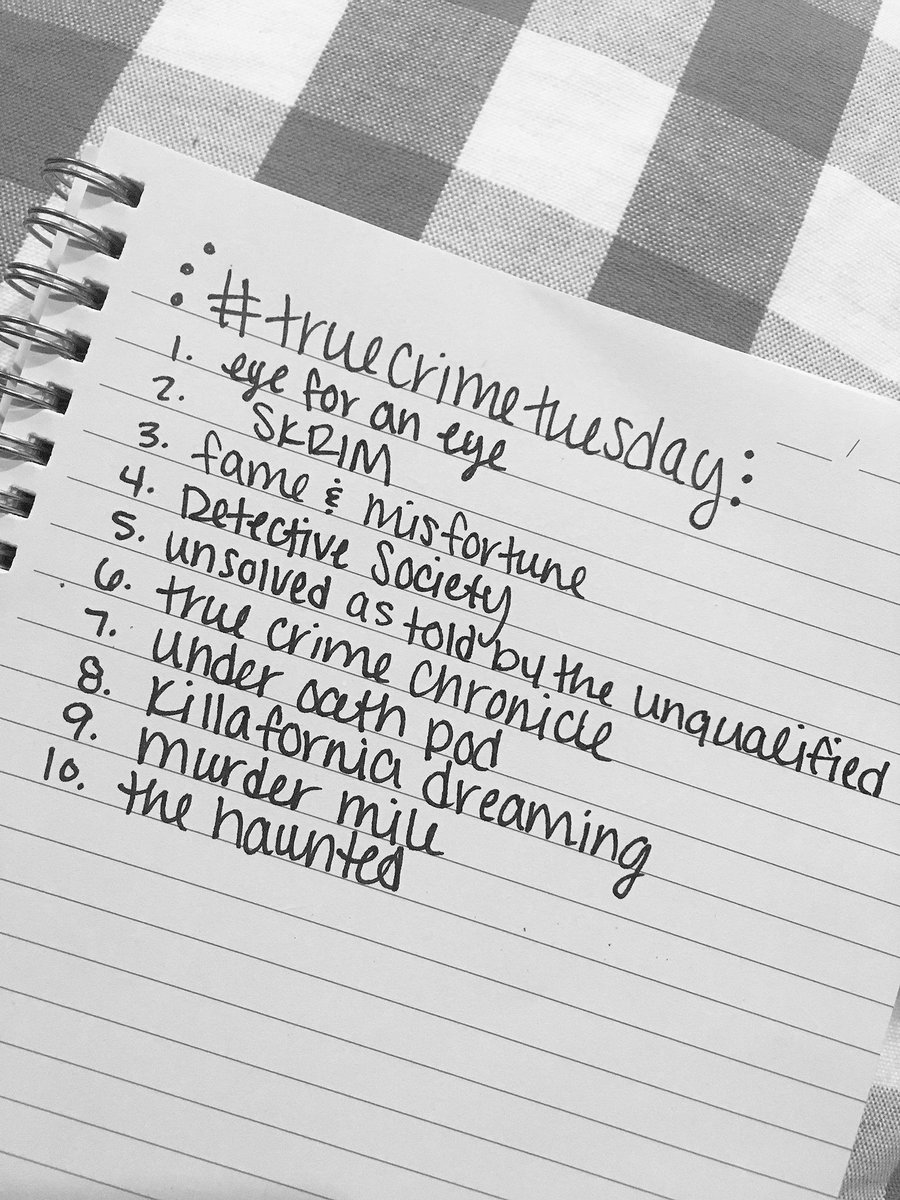 :#truecrimetuesday:
1. eye for an eye
2. SKRIM
3. fame & misfortune
4. Detective Society
5. unsolved as told by the unqualified
6. true crime chronicle
7. under oath pod
8. Killafornia dreaming
9. murder mile
10. the haunted